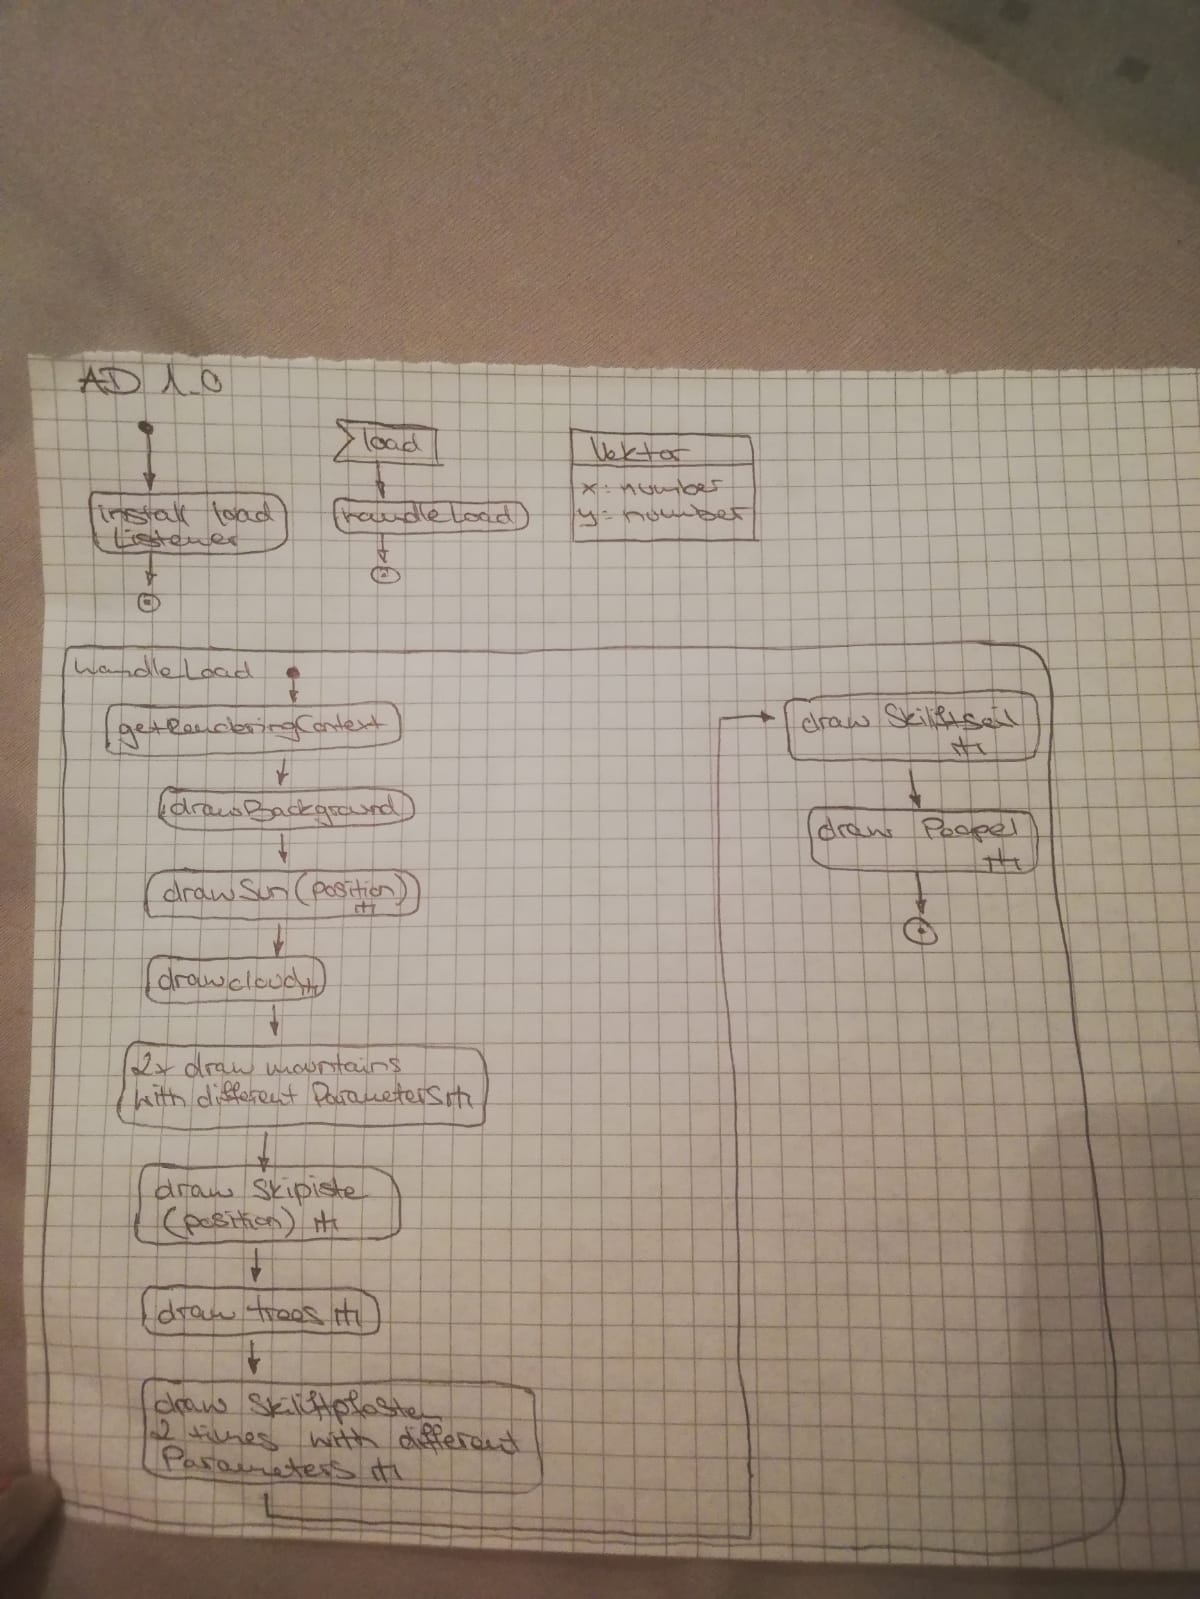 AD 1_0
install load
Listener
load
handleLoad
Vektor
x: number
y: number
handleLoad
getRenderingContext
drawBackground
drawSun(position)
drawcloud
2x draw mountains
with different Parameters
draw Skipiste
(position)
draw trees
draw Skiliftpfosten
2 times with different
Parameters
draw Skiliftseil
draw Peopel